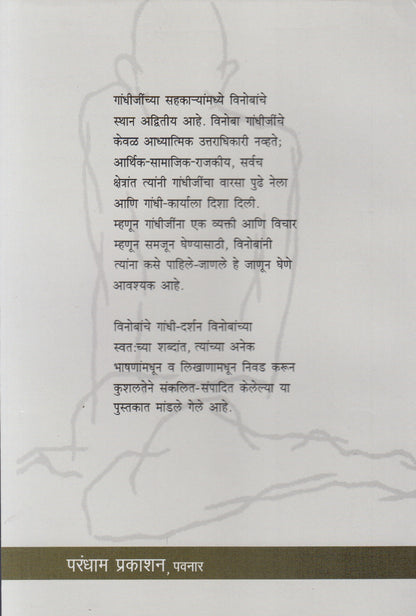 गांधीजींच्या सहकाऱ्यांमध्ये विनोबांचे
स्थान अद्वितीय आहे. विनोबा गांधीजींचे
केवळ आध्यात्मिक उत्तराधिकारी नव्हते;
आर्थिक-सामाजिक-राजकीय, सर्वच
क्षेत्रांत त्यांनी गांधीजींचा वारसा पुढे नेला
आणि गांधी-कार्याला दिशा दिली.
म्हणून गांधीजींना एक व्यक्ती आणि विचार
म्हणून समजून घेण्यासाठी, विनोबांनी
त्यांना कसे पाहिले-जाणले हे जाणून घेणे
आवश्यक आहे.
विनोबांचे गांधी-दर्शन विनोबांच्या
स्वतःच्या शब्दांत, त्यांच्या अनेक
भाषणांमधून व लिखाणामधून निवड करून
कुशलतेने संकलित-संपादित केलेल्या या
पुस्तकात मांडले गेले आहे.
परंधाम प्रकाशन, पवनार